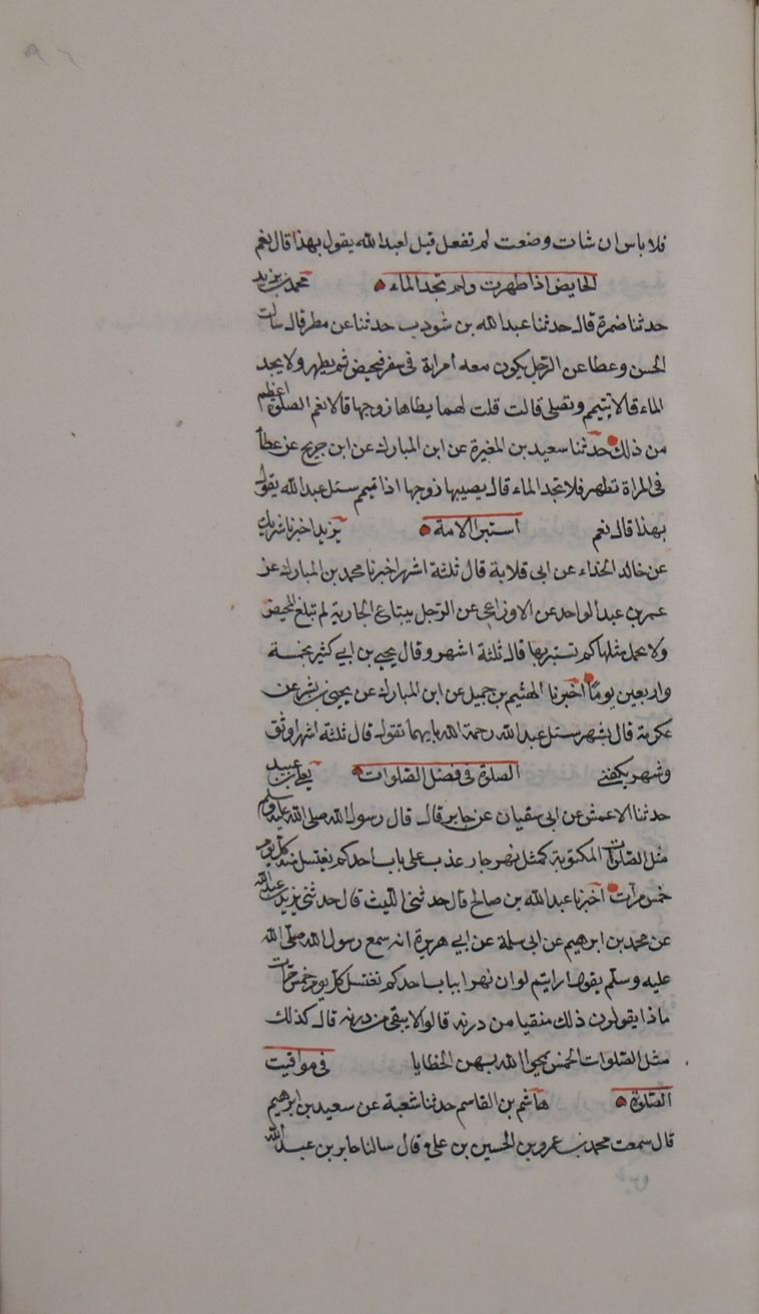 فلا باس ان شات وضعت لم تفعل قيل لعبد الله يقول بهذا قال نعم
الحايض اذا طهرت ولم تجد الماء محمد بن يزيد
حدثنا ضمرة قال حدثنا عبد الله بن شوذب حدثنا عن مطر قال سالت
الحسن وعطا عن الرجل يكون معه امراة في سفر فتحيض ثم يطهر ولا يجد
الماء قالا يتيمم وتصلى قالت قلت لهما يطاها زوجها قالا نعم الصلوة اعظم
من ذلك حدثنا سعيد بن المغيرة عن ابن المبارك عن ابن جريج عن عطا
في المراة تطهر فلا تجد الماء قال يصيبها زوجها اذا تيمم سئل عبد الله يقول
بهذا قال نعم استبرا الامة يزيد اخبرنا شريك
عن خالد الحذاء عن ابى قلابة قال ثلثة اشهر اخبرنا محمد بن المبارك عن
عمر بن عبد الواحد عن الاوزاعي عن الرجل يبتاع الجارية لم تبلغ المحيض
ولا تحمل مثلها كم تستبريها قال ثلثة اشهر وقال يحيى بن ابي كثير بخمسة
واربعين يوما اخبرنا الهثيم بن جميل عن ابن المبارك عن يحيى بن بشر عن
عكرمة قال بشهر سئل عبد الله رحمة الله بايهما تقول قال ثلثة اشهر اوثق
وشهر يكفى الصلوة في فضل الصلوات يعلى بن عبيد
حدثنا الاعمش عن ابى سفيان عن جابر قال قال رسول الله صلى الله عليه وسلم
مثل الصلوات المكتوبة كمثل نهر جار عذب على باب احدكم يغتسل منه كل يوم
خمس مرات اخبرنا عبد الله بن صالح قال حدثنى الليث قال حدثنى يزيد بن عبد الله
عن محمد بن ابرهيم عن ابى سلمة عن ابي هريرة انه سمع رسول الله صلى الله
عليه وسلم يقول ارايتم لو ان نهرا بباب احدكم تغتسل كل يوم خمس مرات
ماذا يقولون ذلك منقيا من درنه قالوا لا يبقى من درنه قال كذلك
مثل الصلوات الخمس يمحوا الله بهن الخطايا في مواقيت
الصلوة هاشم بن القاسم حدثنا شعبة عن سعيد بن ابرهيم
قال سمعت محمد بن عمرو بن الحسين بن على قال سالنا جابر بن عبد الله